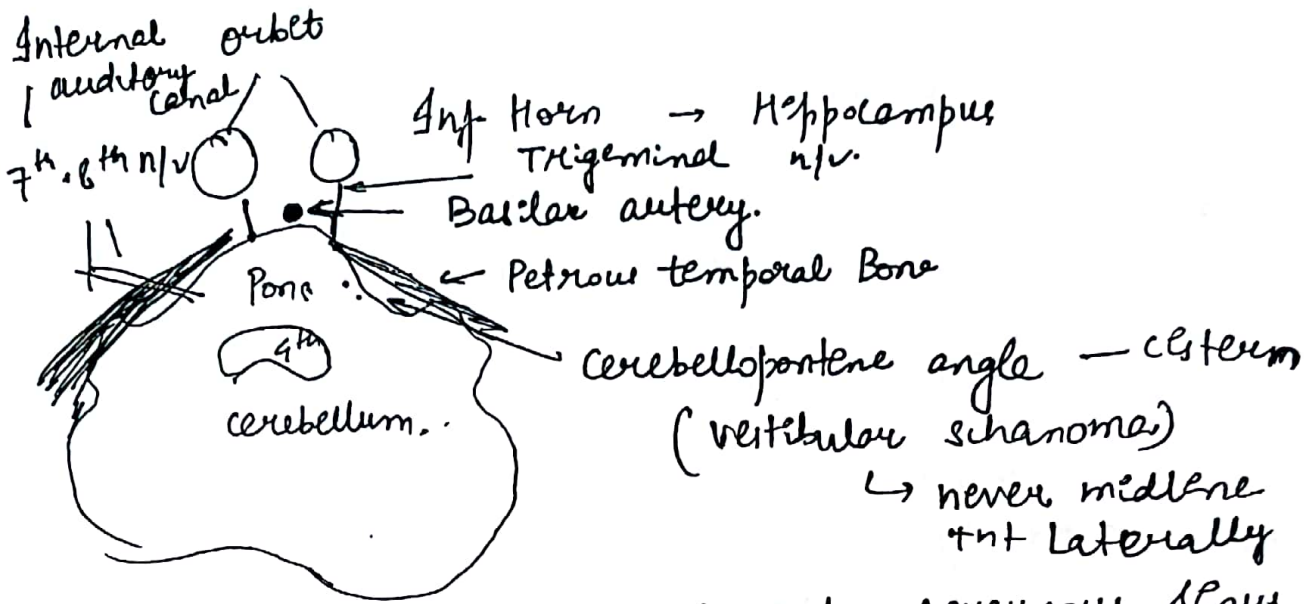 Internal orbet
auditory
canal
7th . 8th n/v
Inf Horn → Heppocampus
Trigeminal n/v.
Basilar autery.
Petrous temporal Bone
Pons
4th
cerebellum.
cerebellopontene angle — cestern
(vestibular schanoma)
↳ never midlene
+nt Laterally